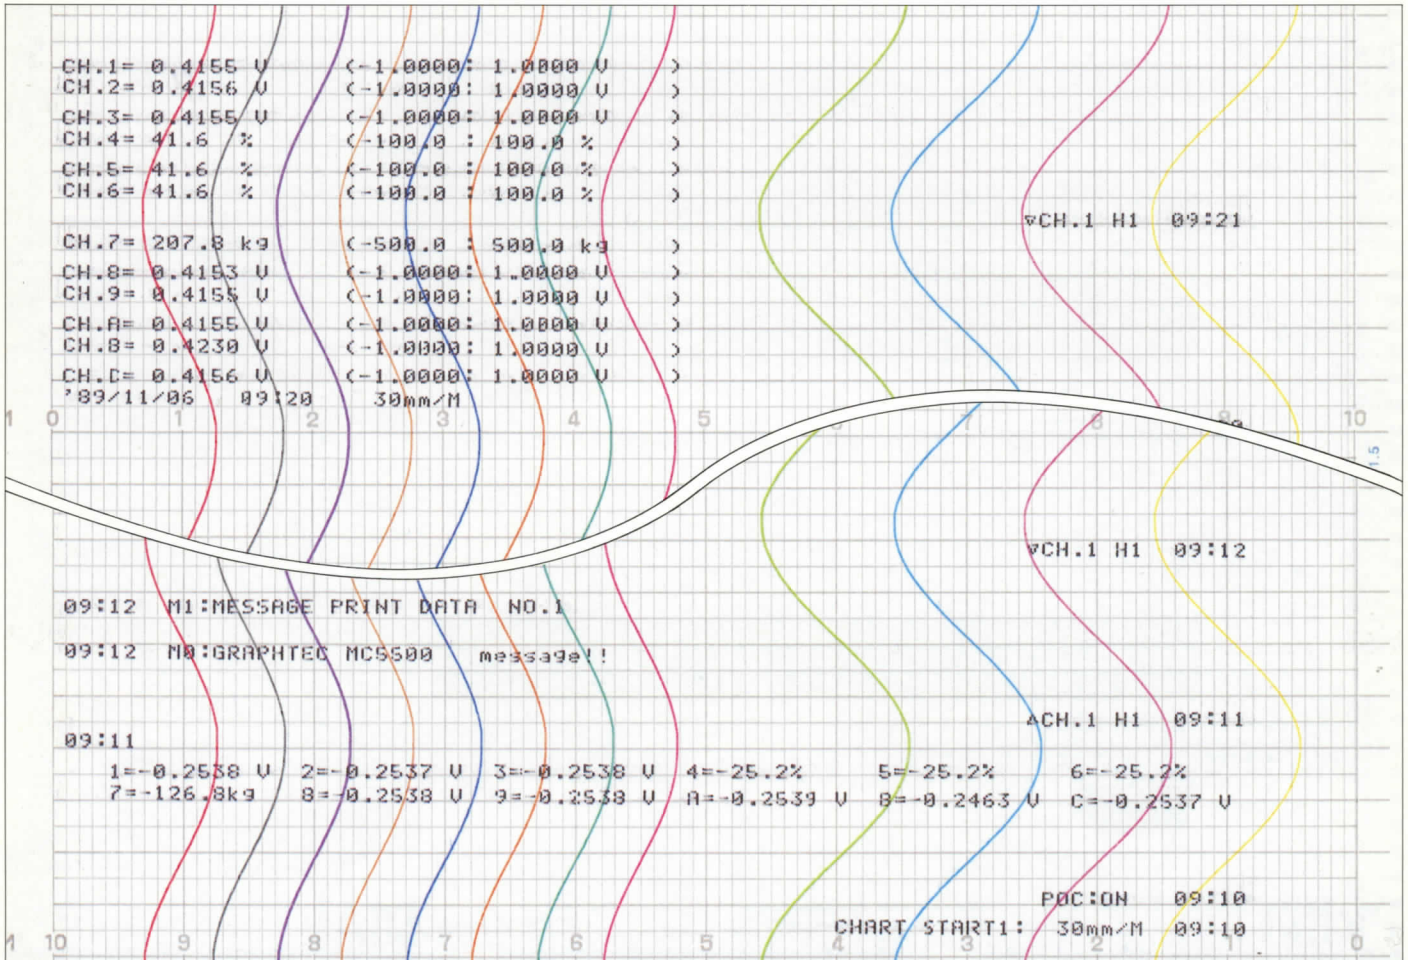 CH.1= 0.4155 V (-1.0000: 1.0000 V )
CH.2= 0.4156 V (-1.0000: 1.0000 V )
CH.3= 0.4155 V (-1.0000: 1.0000 V )
CH.4= 41.6 % (-100.0 : 100.0 % )
CH.5= 41.6 % (-100.0 : 100.0 % )
CH.6= 41.6 % (-100.0 : 100.0 % )
▽CH.1 H1 09:21
CH.7= 207.8 kg (-500.0 : 500.0 kg )
CH.8= 0.4153 V (-1.0000: 1.0000 V )
CH.9= 0.4155 V (-1.0000: 1.0000 V )
CH.A= 0.4155 V (-1.0000: 1.0000 V )
CH.B= 0.4230 V (-1.0000: 1.0000 V )
CH.C= 0.4156 V (-1.0000: 1.0000 V )
'89/11/06 09:20 30mm/M
0 1 2 3 4 5 6 7 8 9 10
1.5
▽CH.1 H1 09:12
09:12 M1:MESSAGE PRINT DATA NO.1
09:12 M0:GRAPHTEC MC5500 message!!
△CH.1 H1 09:11
09:11
1=-0.2538 V 2=-0.2537 V 3=-0.2538 V 4=-25.2% 5=-25.2% 6=-25.2%
7=-126.8kg 8=-0.2538 V 9=-0.2538 V A=-0.2539 V B=-0.2463 V C=-0.2537 V
POC:ON 09:10
CHART START1: 30mm/M 09:10
10 9 8 7 6 5 4 3 2 1 0